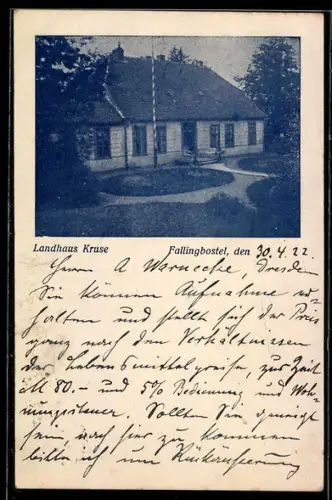 Landhaus Kruse Fallingbostel, den 30.4.22
Herrn A Warnecke, Dresden
Sie können Aufnahme er-
halten und stellt sich der Preis
ganz nach den Verhältnissen
der Lebensmittelpreise, zur Zeit
M 80.- und 5% Bedienung und Woh-
nungssteuer. Sollten Sie geneigt
sein, nach hier zu kommen
bitte ich um Rückäusserung